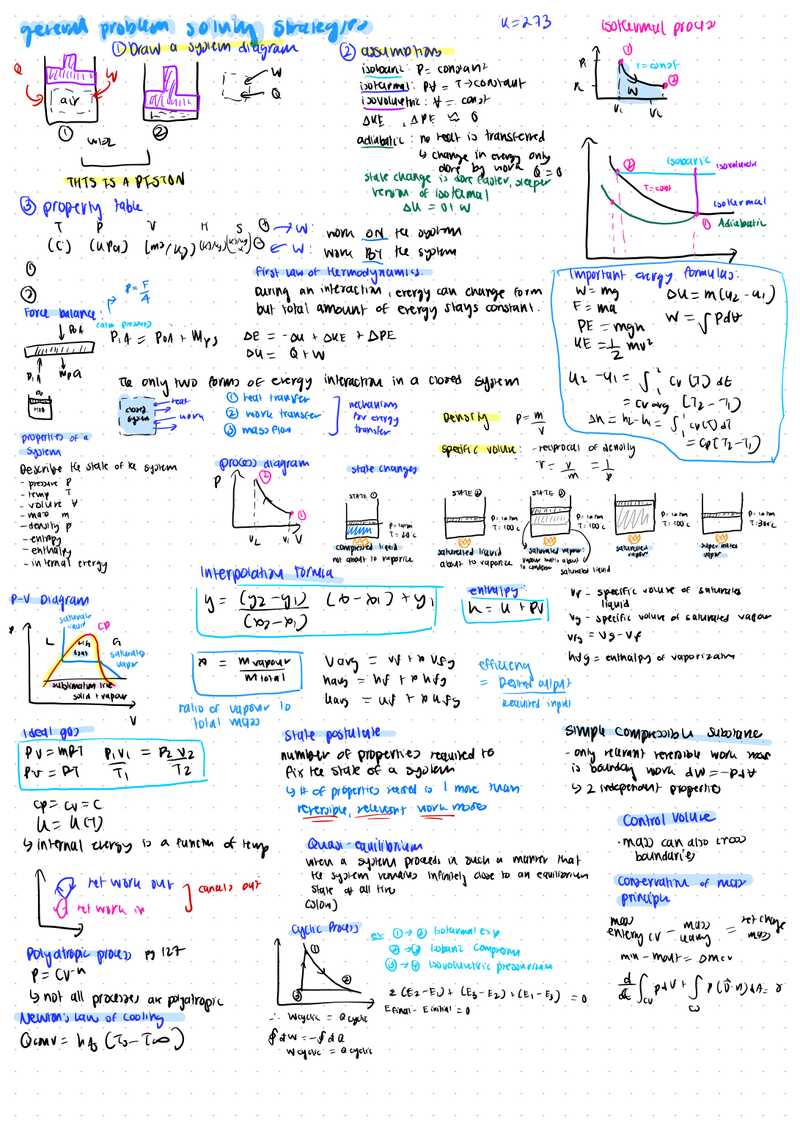 general problem solving strategies
K = 273
① Draw a system diagram
Q
W
air
①
②
W
Q
THIS IS A PISTON
② assumptions
isobaric: P = constant
isothermal: P∀ = T → constant
isovolumetric: ∀ = const
ΔKE, ΔPE ≈ 0
adiabatic: no heat is transferred
↳ change in energy only
done by work Q = 0
state change is done easier, steeper
version of isothermal
ΔU = 0 + W
isothermal process
①
T = const
②
W
V1
V2
isobaric
isovolumetric
②
T = const
isothermal
①
Adiabatic
③ property table
T P V H S
(C) (kPa) (m³/kg) (kJ/kg)
①
②
→ W: work ON the system
← W: work BY the system
First law of thermodynamics:
During an interaction, energy can change form
but total amount of energy stays constant.
Force balance:
P = F/A
P0A
PiA
mpg
PiA = P0A + Mg
ΔE = ΔU + ΔKE + ΔPE
ΔU = Q + W
Important energy formulas:
W = mg
F = ma
PE = mgh
KE = 1/2 mv²
ΔU = m(u2 - u1)
W = ∫ Pd∀
u2 - u1 = ∫ cv(T) dt
= cv avg (T2 - T1)
Δh = h2 - h1 = ∫ cp(T) dT
= cp(T2 - T1)
The only two forms of energy interaction in a closed system
closed system
heat
work
① heat transfer
② work transfer
③ mass flow
mechanisms
for energy
transfer
Density ρ = m/V
specific volume: - reciprocal of density
v = V/m = 1/ρ
properties of a
system
Describe the state of the system
- pressure P
- temp T
- volume ∀
- mass m
- density ρ
- entropy
- enthalpy
- internal energy
process diagram
P
②
①
V2
V1
V
state changes
STATE ①
P = 1 atm
T = 20°C
compressed liquid
not about to vaporize
STATE ②
P = 1 atm
T = 100°C
saturated liquid
about to vaporize
STATE ③
P = 1 atm
T = 100°C
saturated vapour
vapour that's about
to condense
saturated liquid
P = 1 atm
T = 100°C
saturated
vapor
P = 1 atm
T = 300°C
super heated
vapor
Interpolation formula
y = (y2 - y1)/(x2 - x1) (x - x1) + y1
enthalpy:
h = u + Pv
vf - specific volume of saturated
liquid
vg - specific volume of saturated vapour
vfg = vg - vf
hfg = enthalpy of vaporization
P-V Diagram
P
saturated
liquid
CP
L
G
saturated
vapor
sublimation line
solid + vapour
V
x = m vapour / m total
ratio of vapour to
total mass
v avg = vf + x vfg
h avg = hf + x hfg
u avg = uf + x ufg
efficiency
= Desired output / Required input
Ideal gas
PV = mRT
Pv = RT
P1V1/T1 = P2V2/T2
cp = cv = c
u = u(T)
↳ internal energy is a function of temp
State postulate
number of properties required to
fix the state of a system
↳ # of properties needed is 1 more than
reversible, relevant work modes
Simple compressible substance
- only relevant reversible work mode
is boundary work dW = -Pd∀
↳ 2 independent properties
Control volume
- mass can also cross
boundaries
net work out
net work in
cancels out
Quasi-equilibrium
when a system proceeds in such a manner that
the system remains infinitely close to an equilibrium
state at all time
(slow)
Conservation of mass
principle
mass entering CV - mass leaving = net change mass
min - mout = Δmcv
Polytropic process pg 127
P = CV⁻ⁿ
↳ not all processes are polytropic
Newton's law of cooling
Qconv = hAs (Ts - T∞)
Cyclic Process
①
②
③
∴ Wcyclic = Qcyclic
∮dW = -∮dQ
Wcyclic = Qcyclic
ex: ① → ② isothermal exp
② → ③ isobaric compression
③ → ① isovolumetric pressurization
Σ (E2 - E1) + (E3 - E2) + (E1 - E3) = 0
Efinal - Einitial = 0